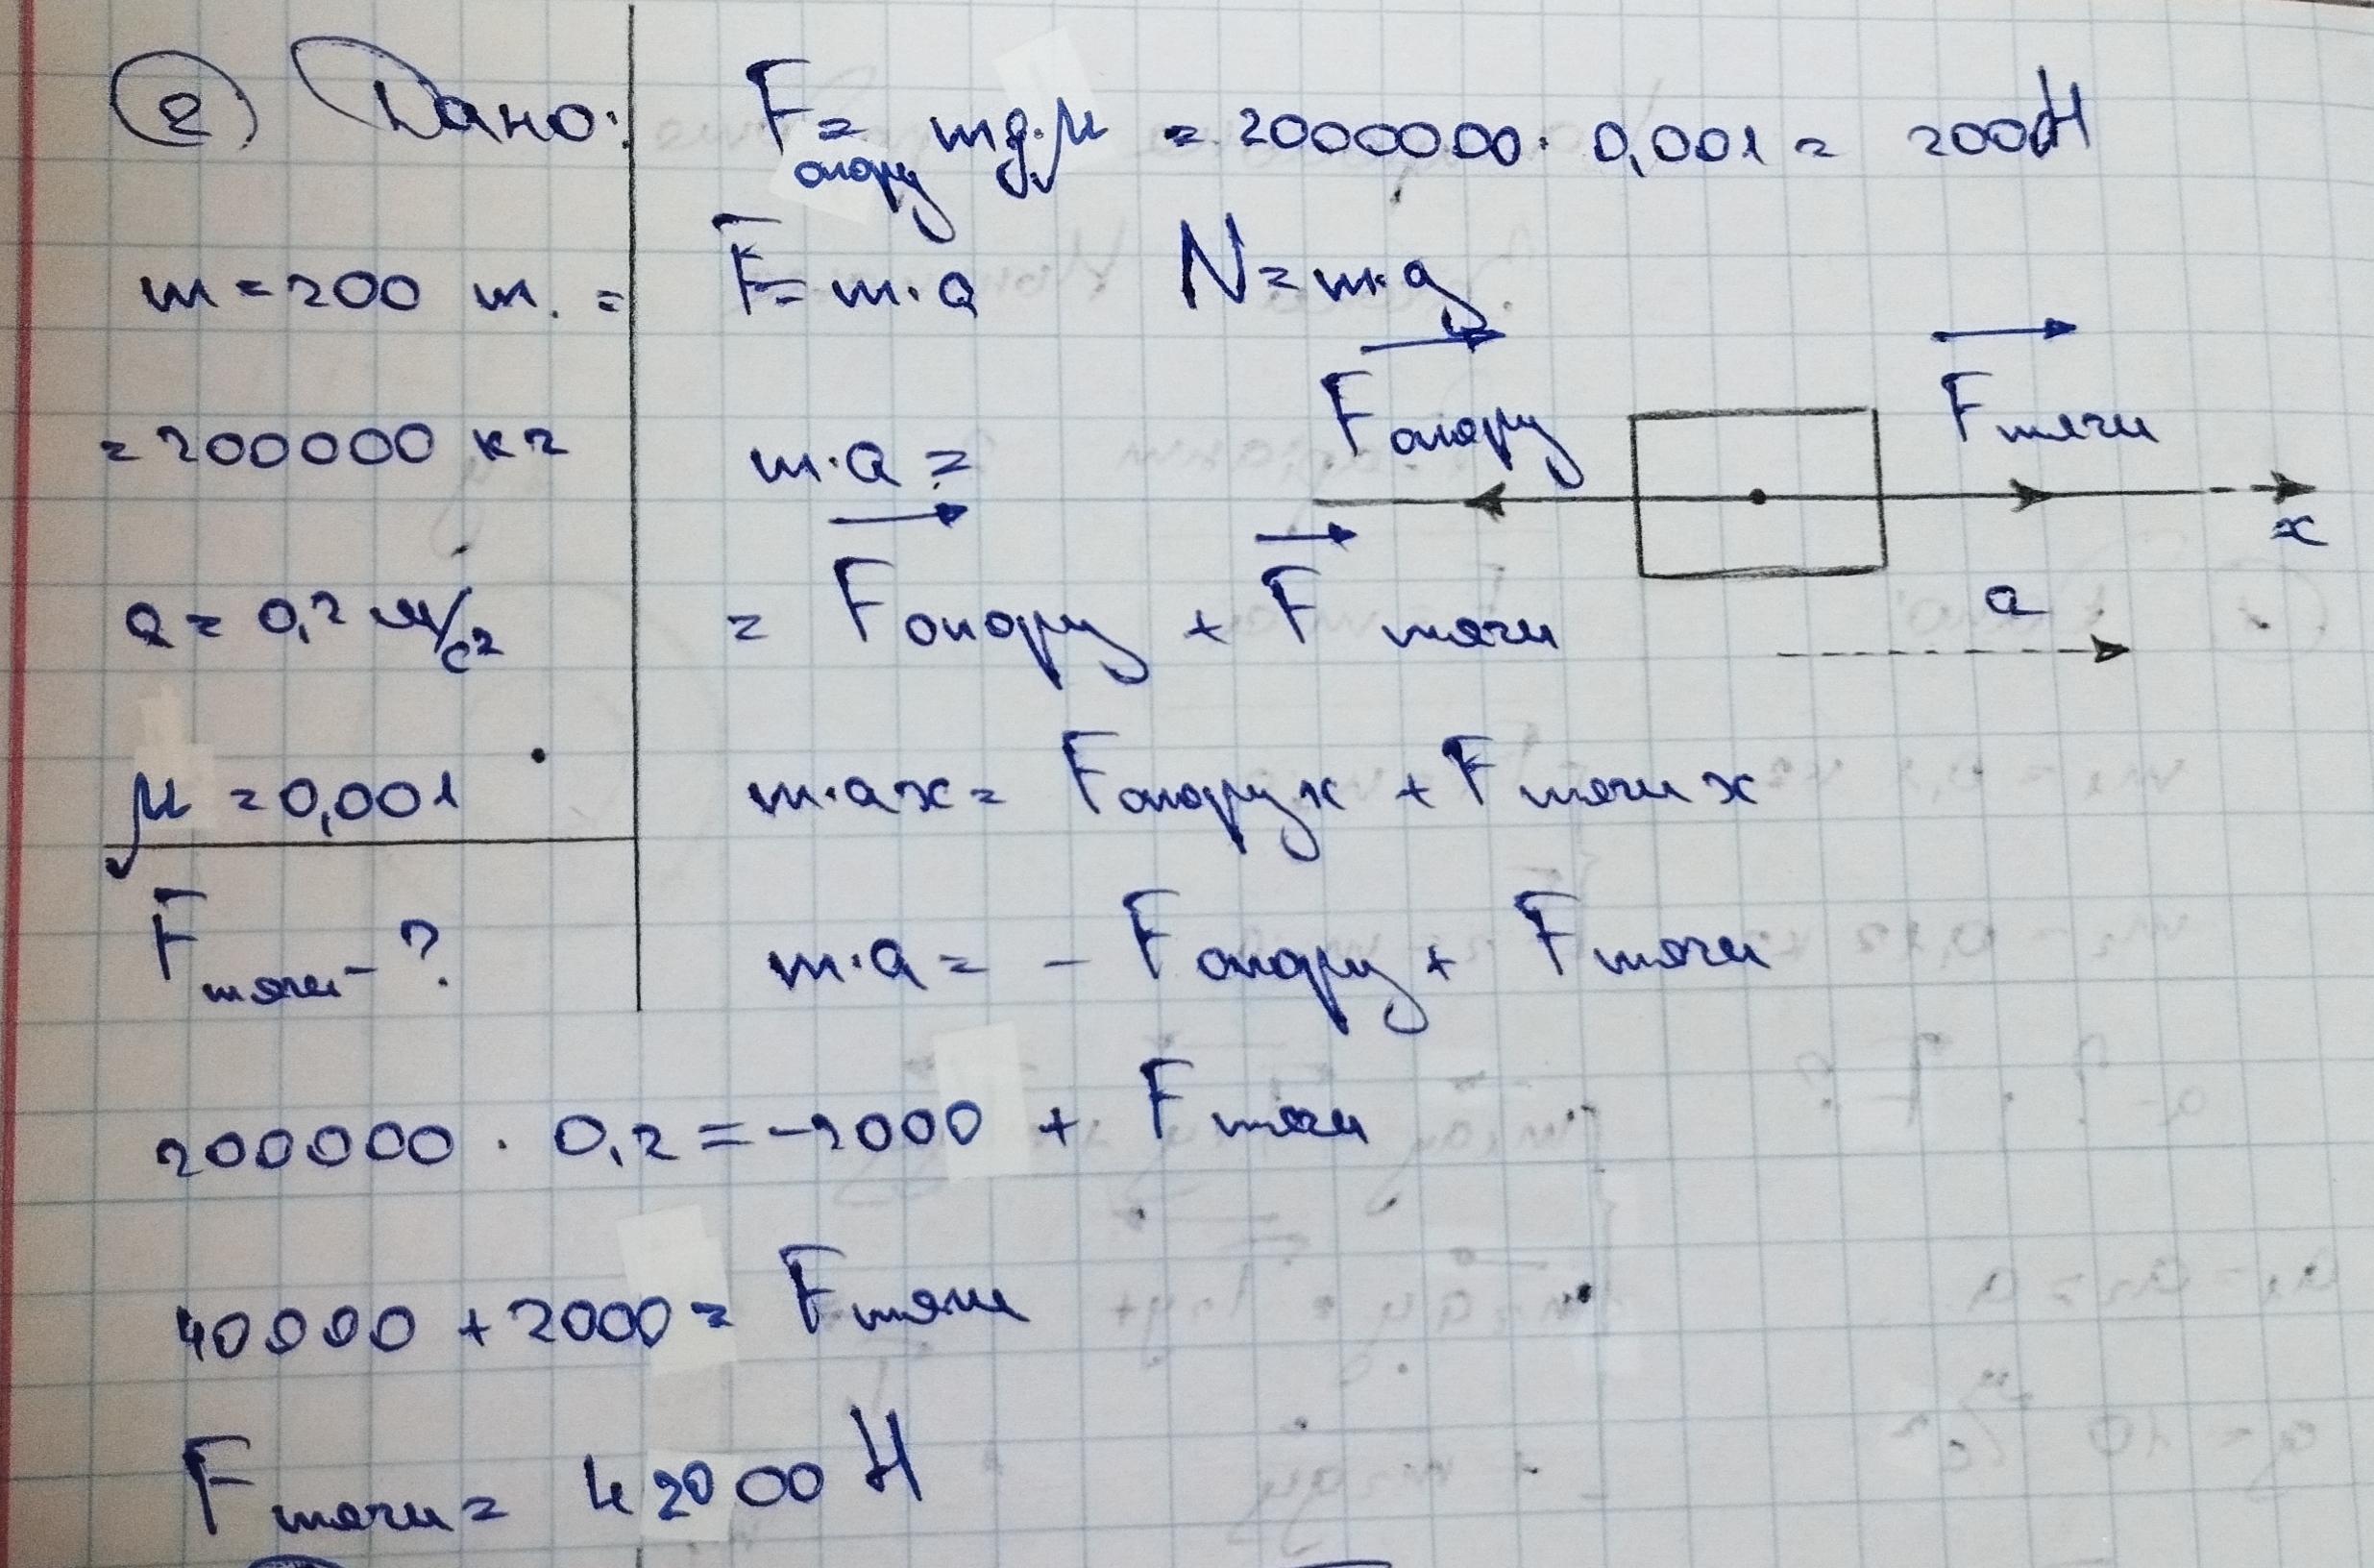 ② Дано:
m = 200 т. =
= 200000 кг
a = 0,2 м/с²
μ = 0,001
Fтяги - ?
Fопору = mg·μ = 2000000 · 0,001 = 2000 Н
F = m·a N = m·g
Fопору Fтяги
m·a =
x
= Fопору + Fтяги
a
m·ax = Fопору x + Fтяги x
m·a = - Fопору + Fтяги
200000 · 0,2 = -2000 + Fтяги
40000 + 2000 = Fтяги
Fтяги = 42000 Н